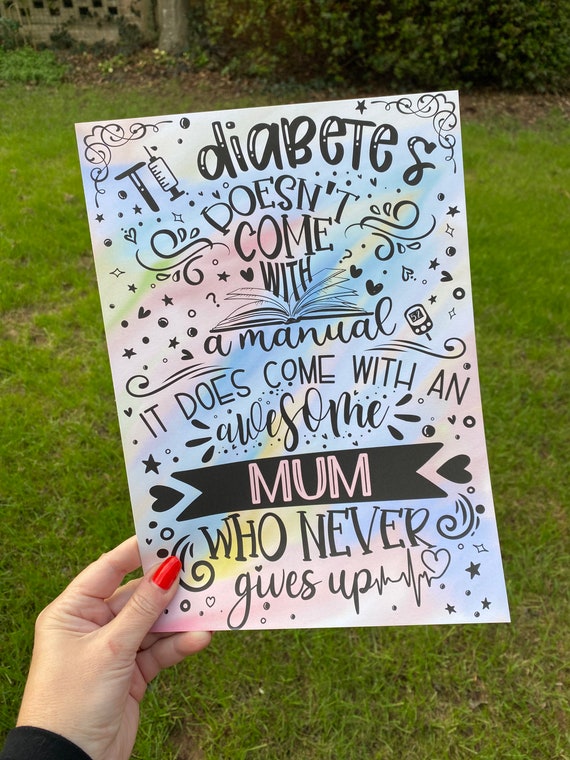 T1 diabetes
DOESN'T
COME
WITH
a manual
IT DOES COME WITH AN
awesome
MUM
WHO NEVER
gives up